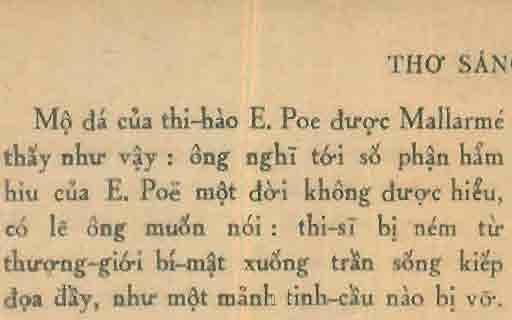 THƠ SÁN
Mộ đá của thi-hào E. Poe được Mallarmé
thấy như vậy : ông nghĩ tới số phận hẩm
hiu của E. Poë một đời không được hiểu,
có lẽ ông muốn nói : thi-sĩ bị ném từ
thượng-giới bí-mật xuống trần sống kiếp
đọa đầy, như một mảnh tinh-cầu nào bị vỡ.